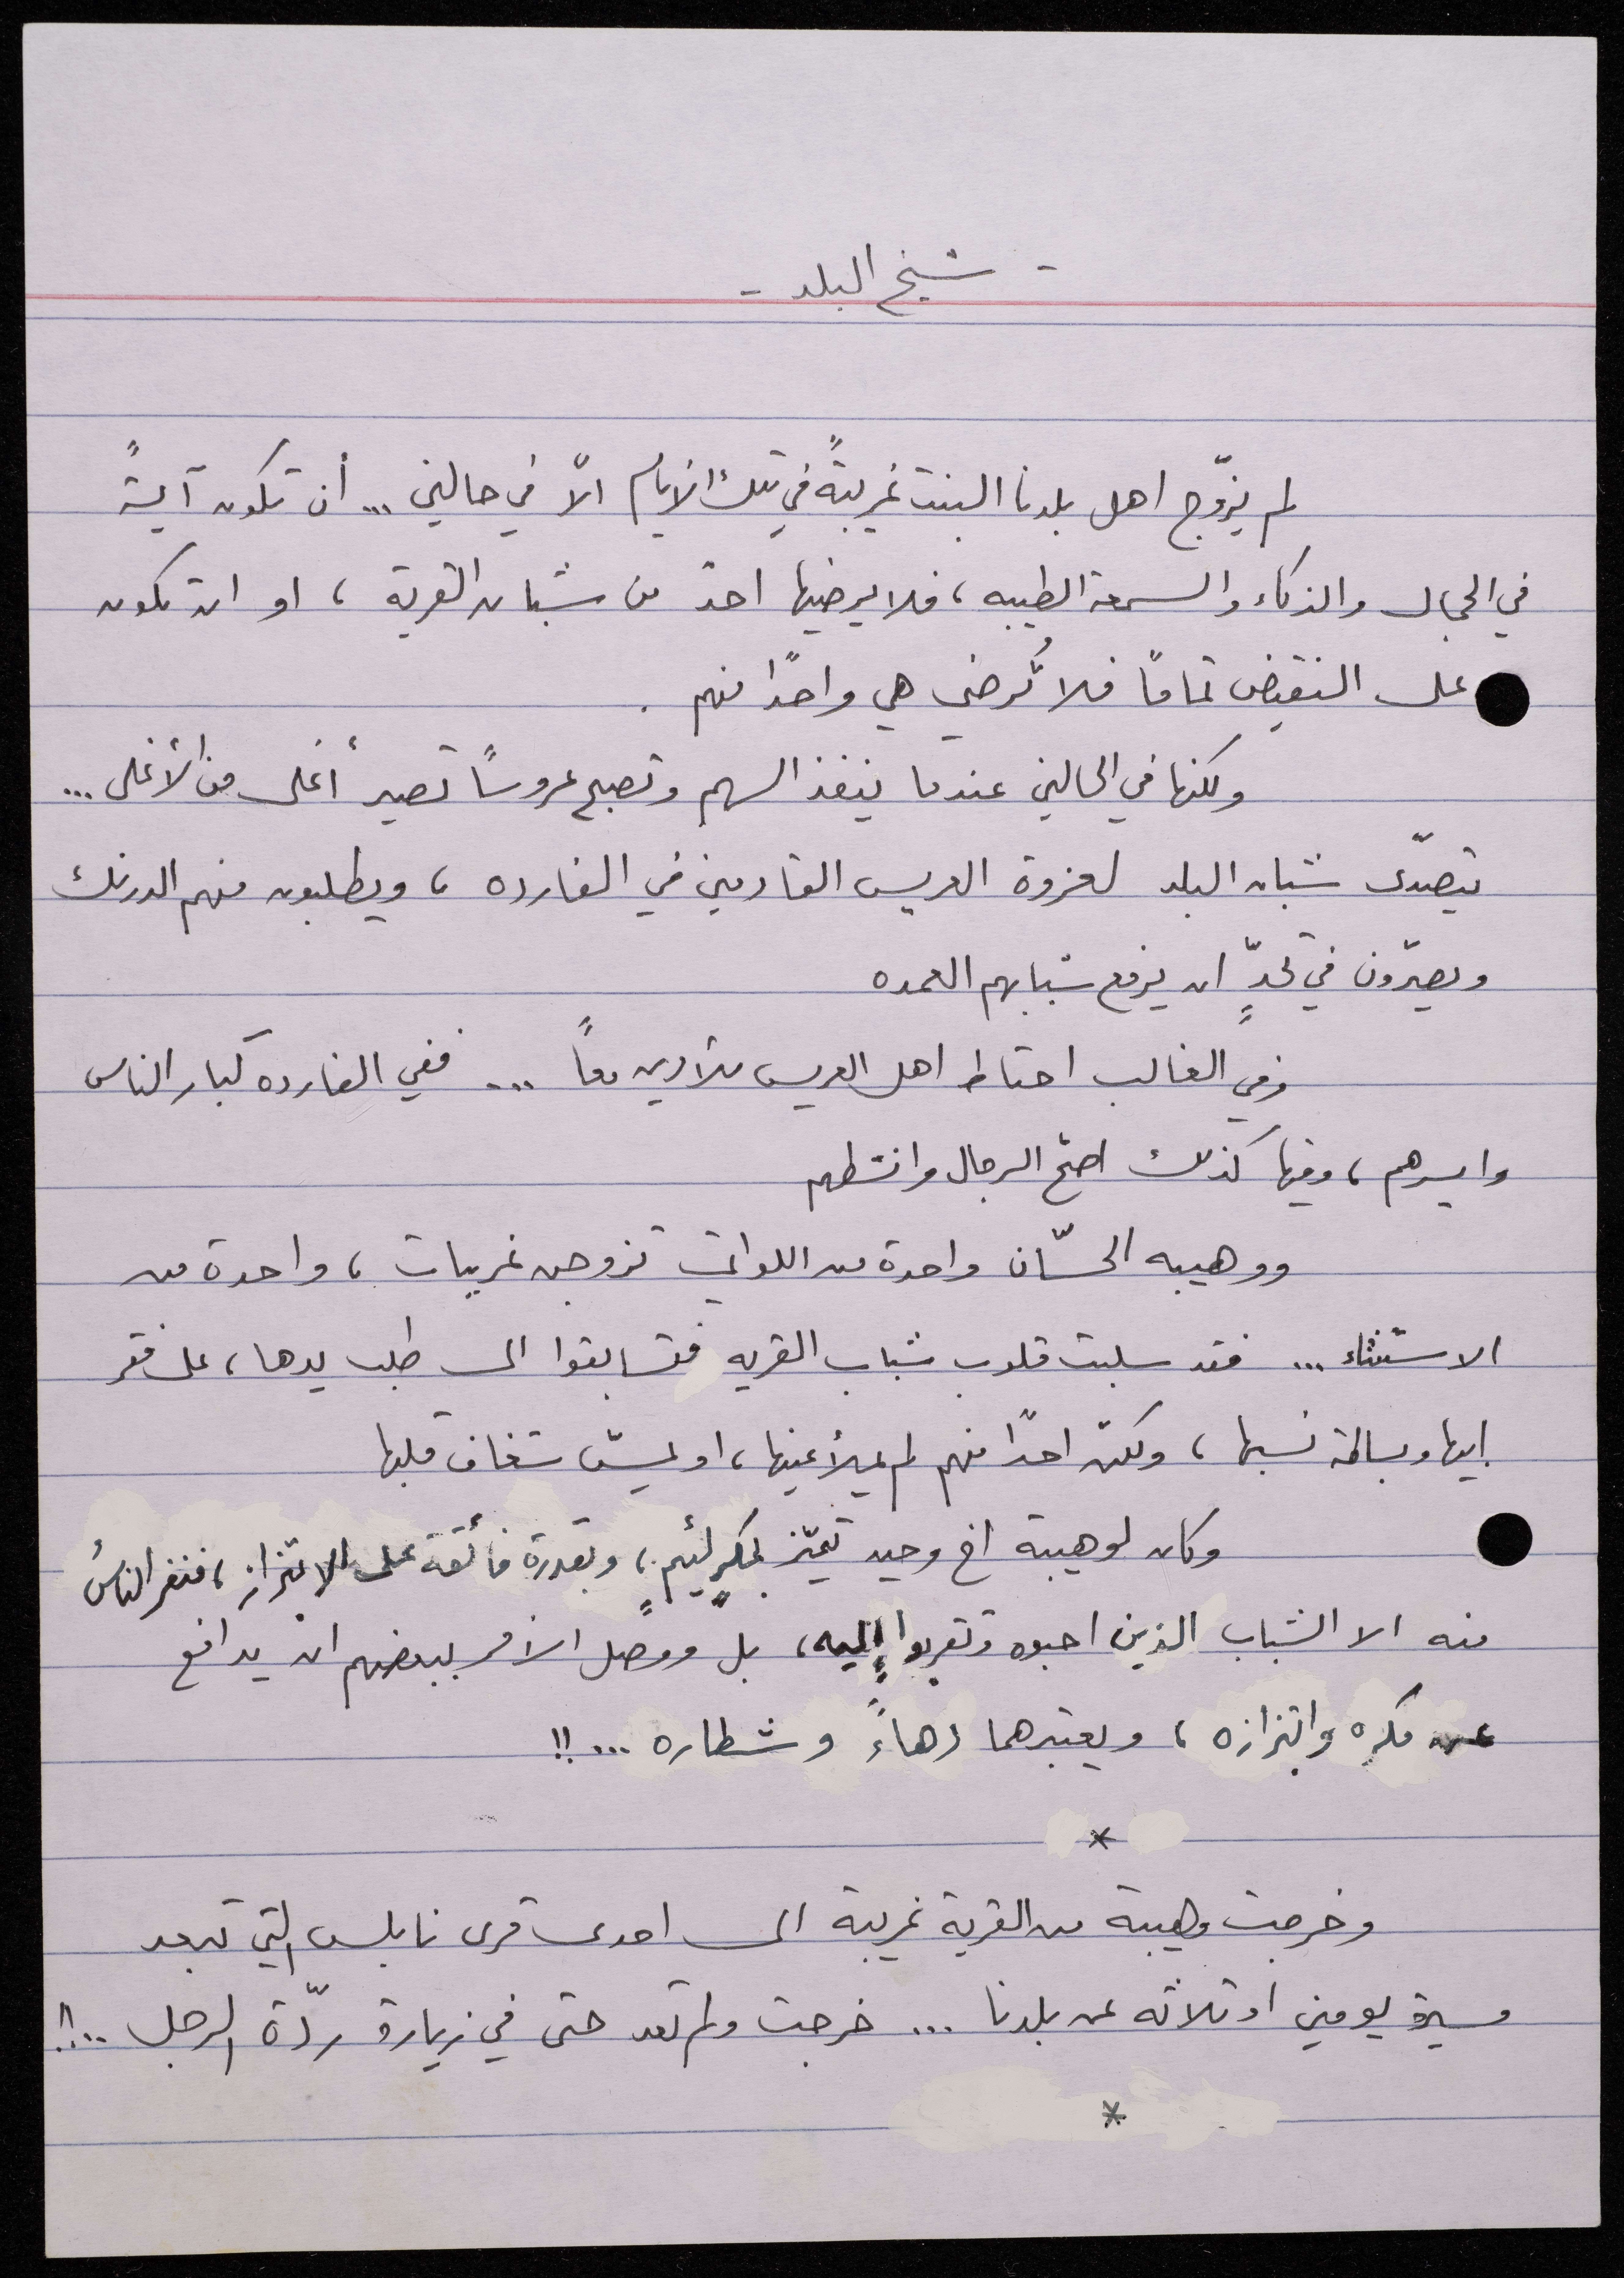 - شيخ البلد -
لم يزوّج اهل بلدنا البنت غريبةً في تلك الايام الاّ في حالين ... أن تكون آيةً
في الجمال والذكاء والسمعة الطيبه ، فلا يرضيها احدٌ من شبان القرية ، او ان تكون
على النقيض تمامًا فلا تُرضي هي واحدًا منهم .
ولكنها في الحالين عندما ينفذ السهم وتصبح عروسًا تصير أغلى من الأغلى ...
يتصدّى شبان البلد لعزوة العريس القادمين في الفارده ، ويطلبون منهم الدرنك
ويصرّون في تحدٍّ ان يرفع شبابهم العمده
وفي الغالب احتاط اهل العريس للأمرين معًا ... ففي الفارده كبار الناس
وايسرهم ، وفيها كذلك اصحّ الرجال وانشطهم
ووهيبه الحسّان واحدة من اللواتي تزوجن غريبات ، واحدة من
الاستثناء ... فقد سلبت قلوب شباب القريه فتسابقوا الى طلب يدها ، على فقر
ابيها وبساطة نسبها ، ولكنّ احدًا منهم لم يملأ عينها ، او يمسّ شغاف قلبها
وكان لوهيبة اخ وحيد تميّز بمكرٍ لئيمٍ ، وبقدرة فائقة على الابتزاز ، فنفر الناسُ
منه الا الشباب الذين احبوه وتقربوا إليه ، بل ووصل الأمر ببعضهم ان يدافع
عن مكره وابتزازه ، ويعتبرهما دهاءً وشطاره ... !!
*
وخرجت وهيبة من القرية غريبة الى احدى قرى نابلس التي تبعد
مسيرة يومين او ثلاثه عن بلدنا ... خرجت ولم تعد حتى في زيارة ردّة الرجل ...!!
*